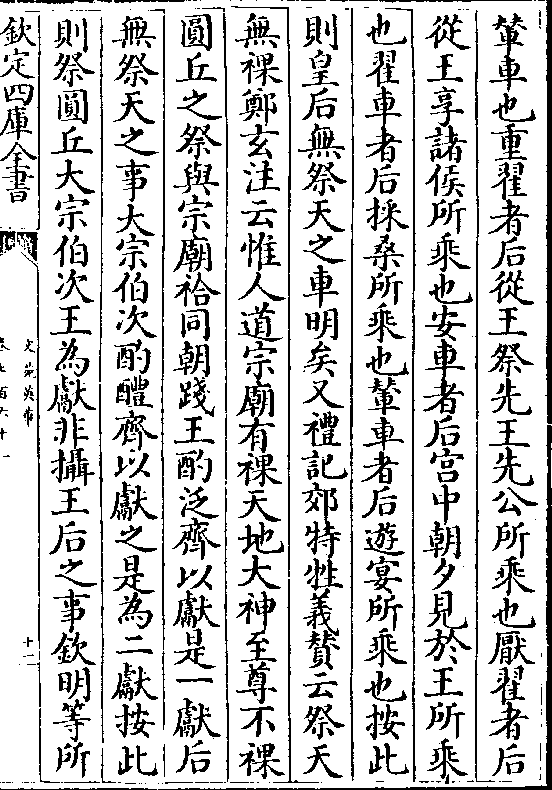 輦車也重翟者后從王祭先王先公所乘也厭翟者后
從王享諸侯所乘也安車者后宫中朝夕見於王所乘
也翟車者后採桑所乘也輦車者后遊宴所乘也按此
則皇后無祭天之車明矣又禮記郊特牲義賛云祭天
無祼鄭玄注云惟人道宗廟有祼天地大神至尊不祼
圓丘之祭與宗廟祫同朝踐王酌泛齊以獻是一獻后
無祭天之事大宗伯次酌醴齊以獻之是為二獻按此
則祭圓丘大宗伯次王為獻非攝王后之事欽明等所
欽定四庫全書
文苑英華
十二